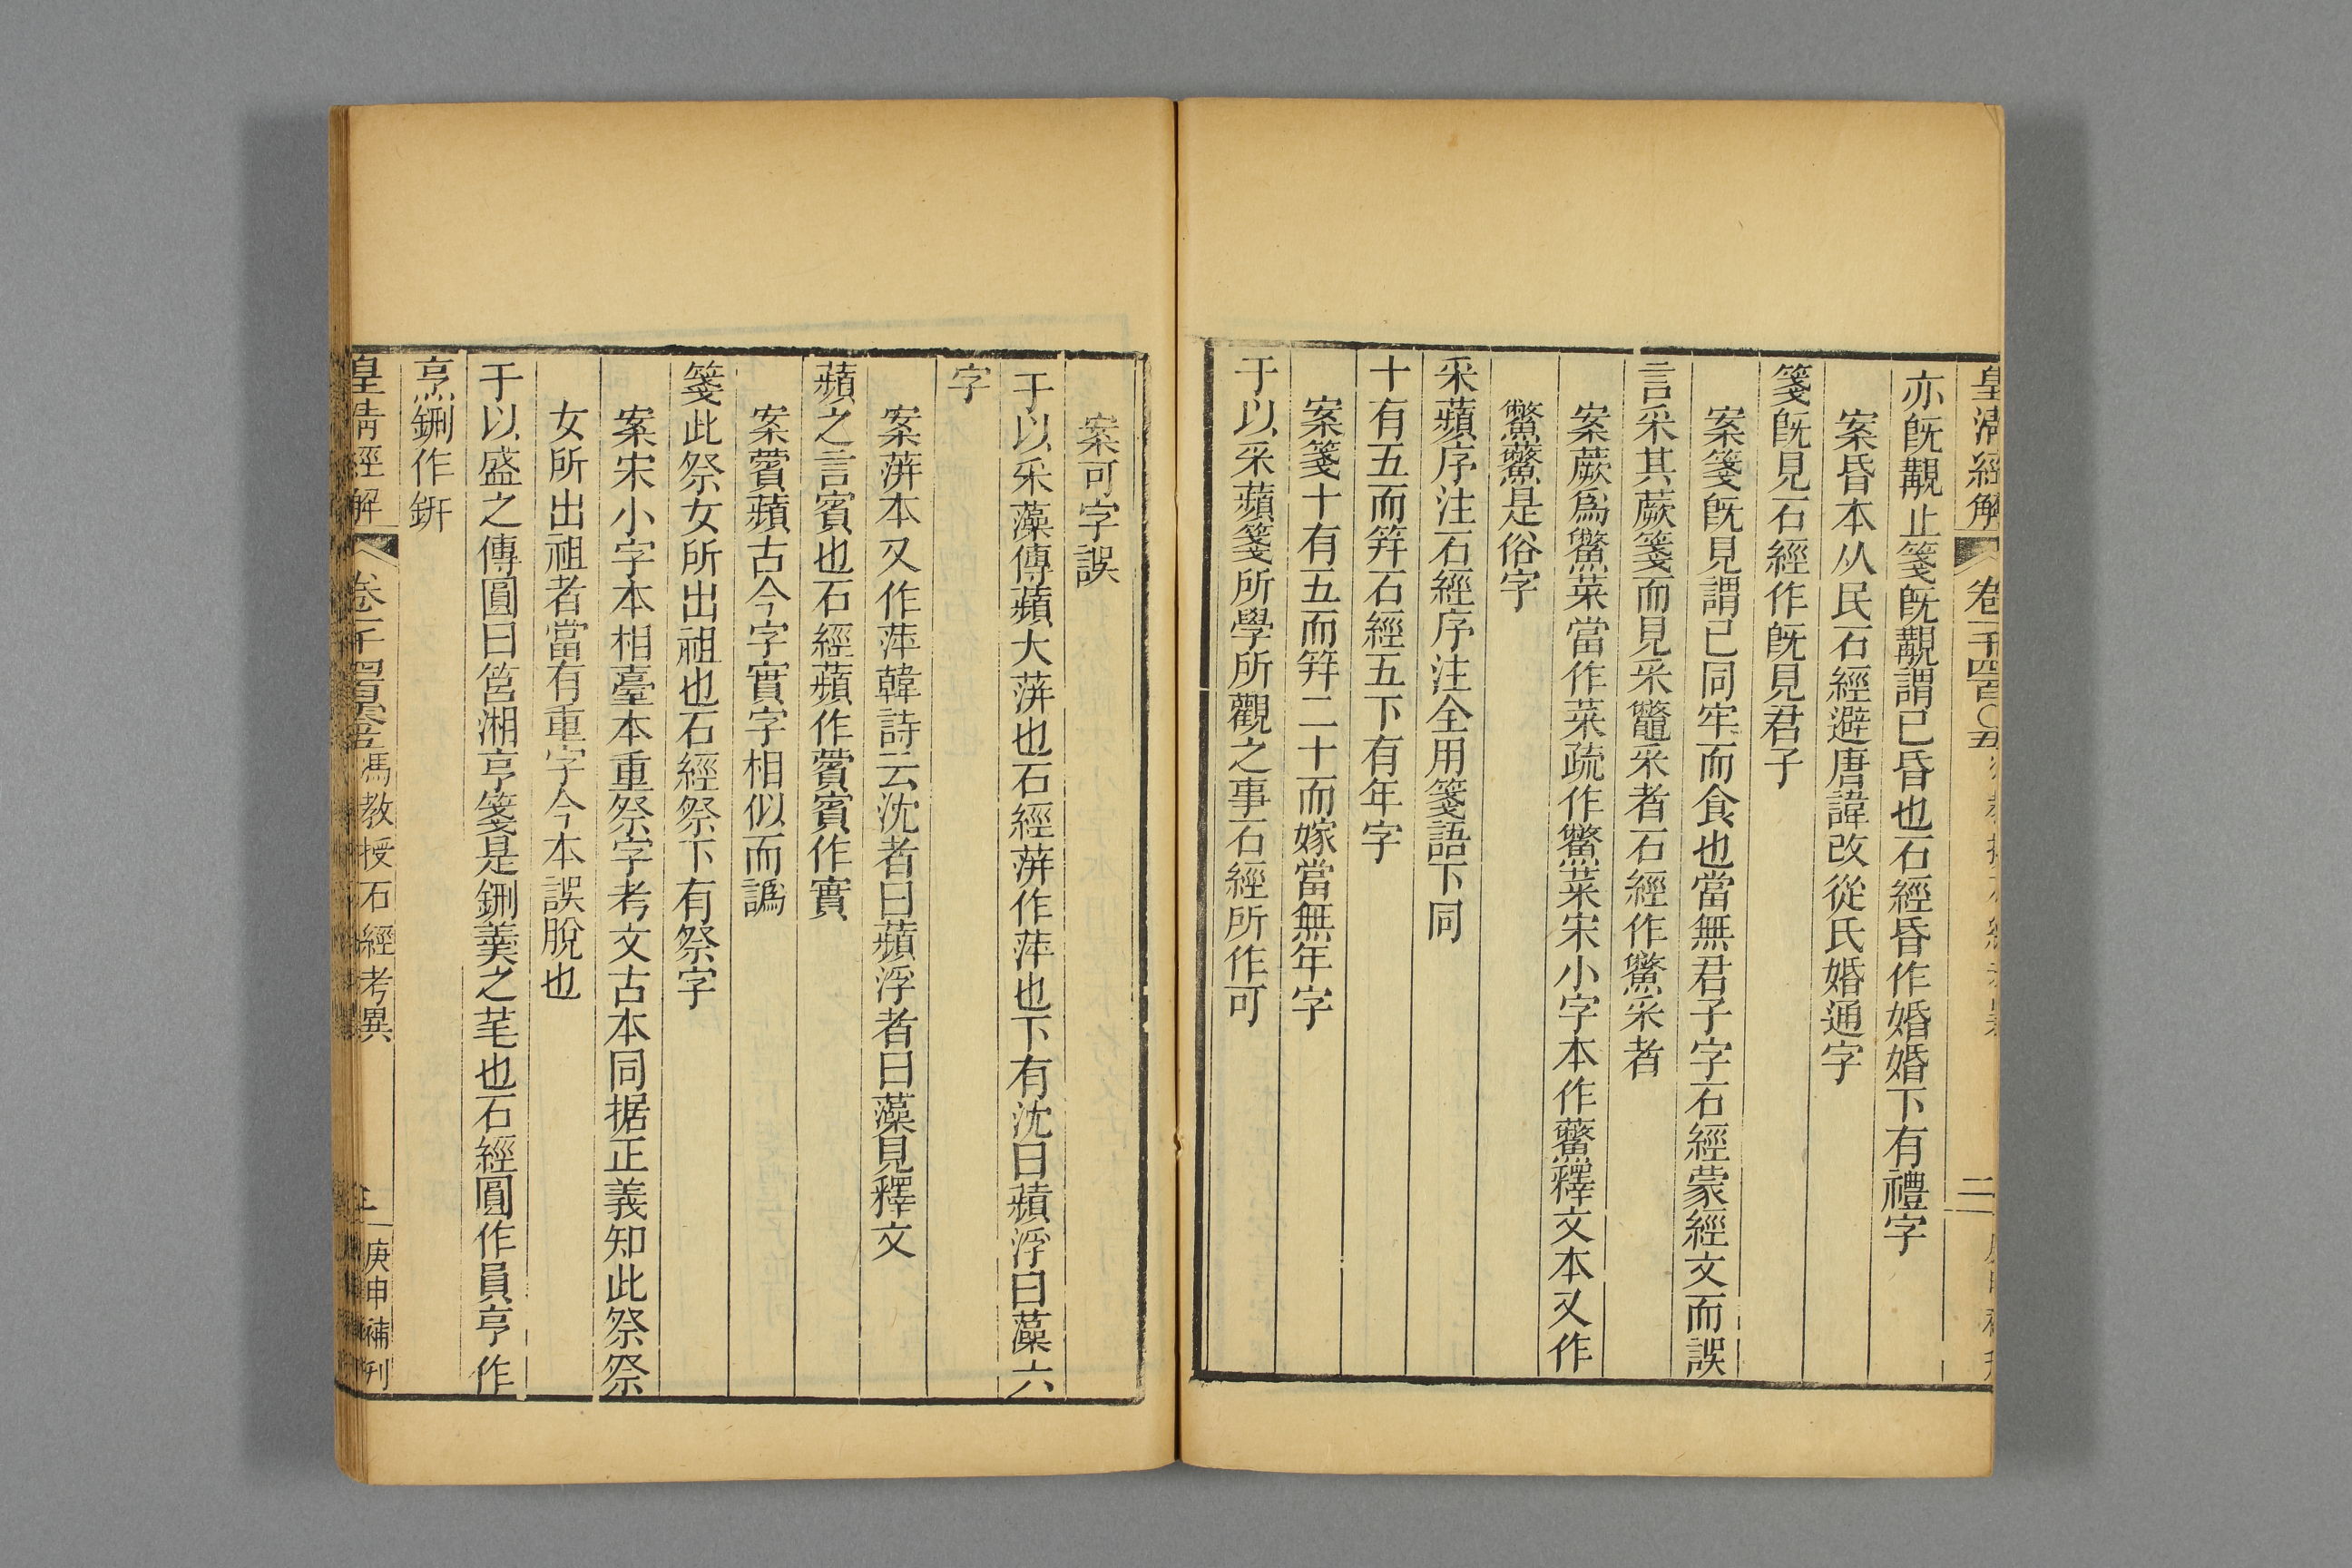 皇清經解
卷一千四百〇五
二
亦旣覯止箋旣覯謂已昏也石經昏作婚婚下有禮字
案昏本从民石經避唐諱改從氏婚通字
箋旣見石經作旣見君子
案箋旣見謂已同牢而食也當無君子字石經蒙經文而誤
言采其蕨箋而見采鼈采者石經作鱉采者
案蕨爲鱉菜當作菜疏作鱉菜宋小字本作虌釋文本又作
鱉虌是俗字
采蘋序注石經序注全用箋語下同
十有五而笄石經五下有年字
案箋十有五而笄二十而嫁當無年字
于以采蘋箋所學所觀之事石經所作可
案可字誤
于以采藻傳蘋大蓱也石經蓱作萍也下有沈曰蘋浮曰藻六
字
案蓱本又作萍韓詩云沈者曰蘋浮者曰藻見釋文
蘋之言賓也石經蘋作薲賓作實
案薲蘋古今字實字相似而譌
箋此祭女所出祖也石經祭下有祭字
案宋小字本相臺本重祭字考文古本同据正義知此祭祭
女所出祖者當有重字今本誤脫也
于以盛之傳圓曰筥湘亨箋是鉶羹之芼也石經圓作員亨作
烹鉶作鈃
皇清經解
馮教授石經考異
庚申補刊